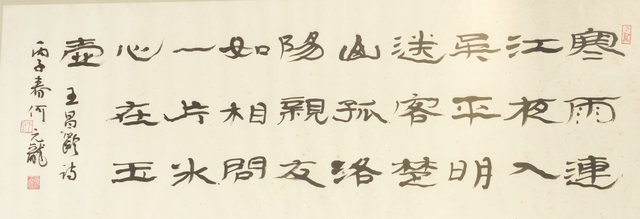 寒雨連
江夜入
吳平明
送客楚
山孤洛
陽親友
如相問
一片冰
心在玉
壺
王昌齡詩
丙子春何元龍